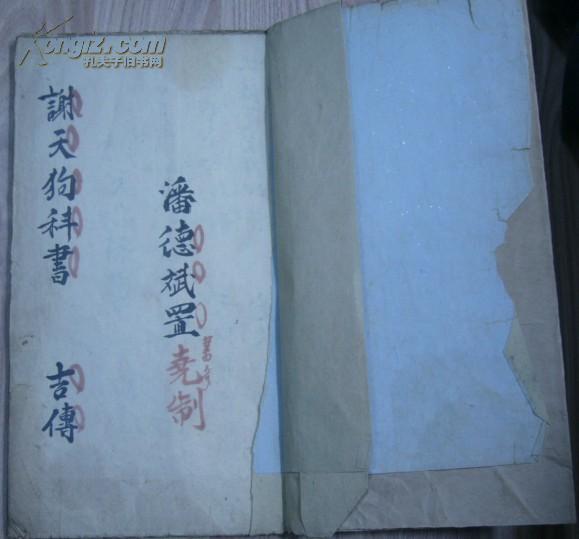 Kongfz.com
孔夫子旧书网
潘德斌置堯制
謝天狗科書 吉傳